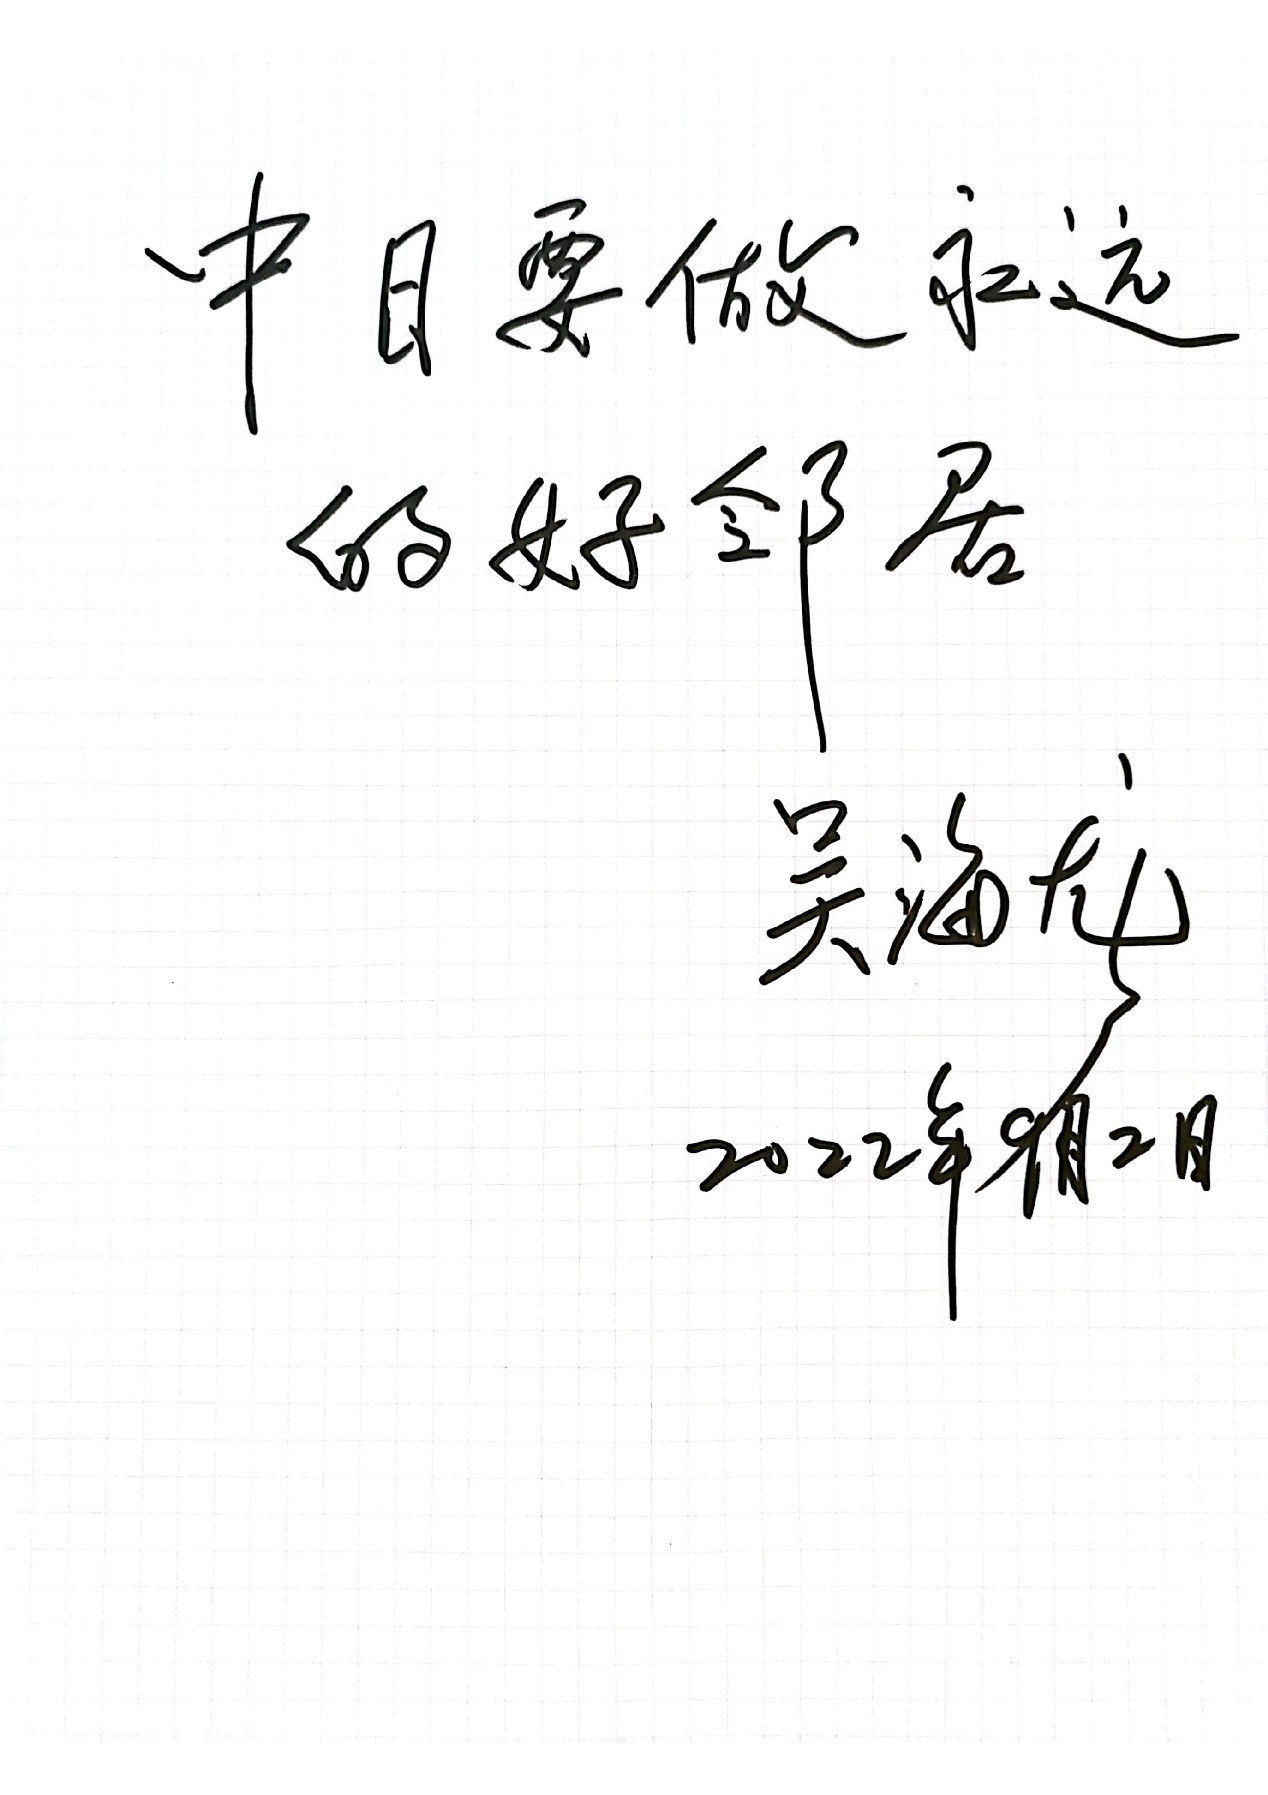 中日要做永远
的好邻居
吴海龙
2022年9月2日